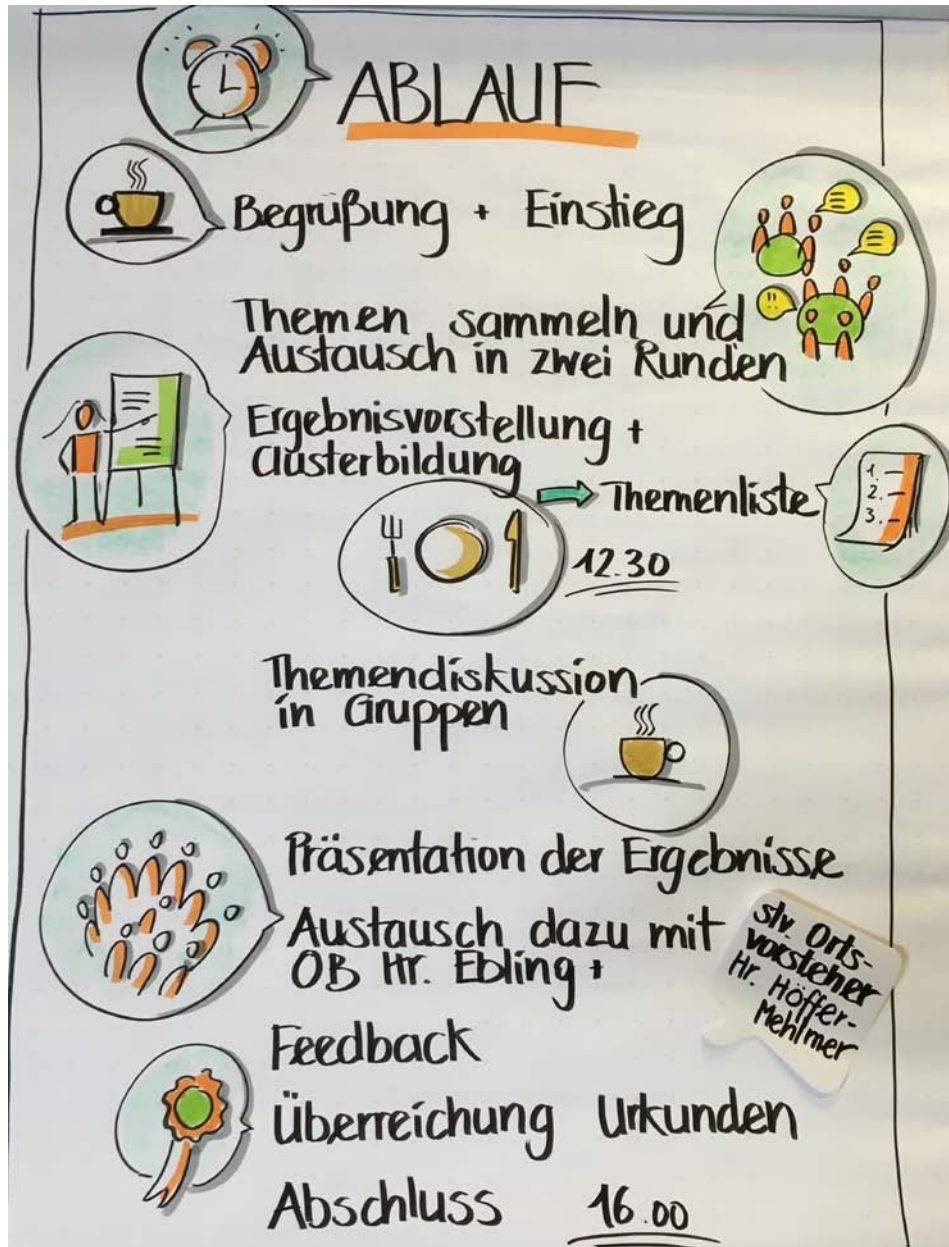 ABLAUF
Begrüßung + Einstieg
Themen sammeln und
Austausch in zwei Runden
Ergebnisvorstellung +
Clusterbildung
Themenliste
1.
2.
3.
12.30
Themendiskussion
in Gruppen
Präsentation der Ergebnisse
Austausch dazu mit
OB Hr. Ebling +
stv. Orts-
vorsteher
Hr. Höffer-
Mehlmer
Feedback
Überreichung Urkunden
Abschluss 16.00